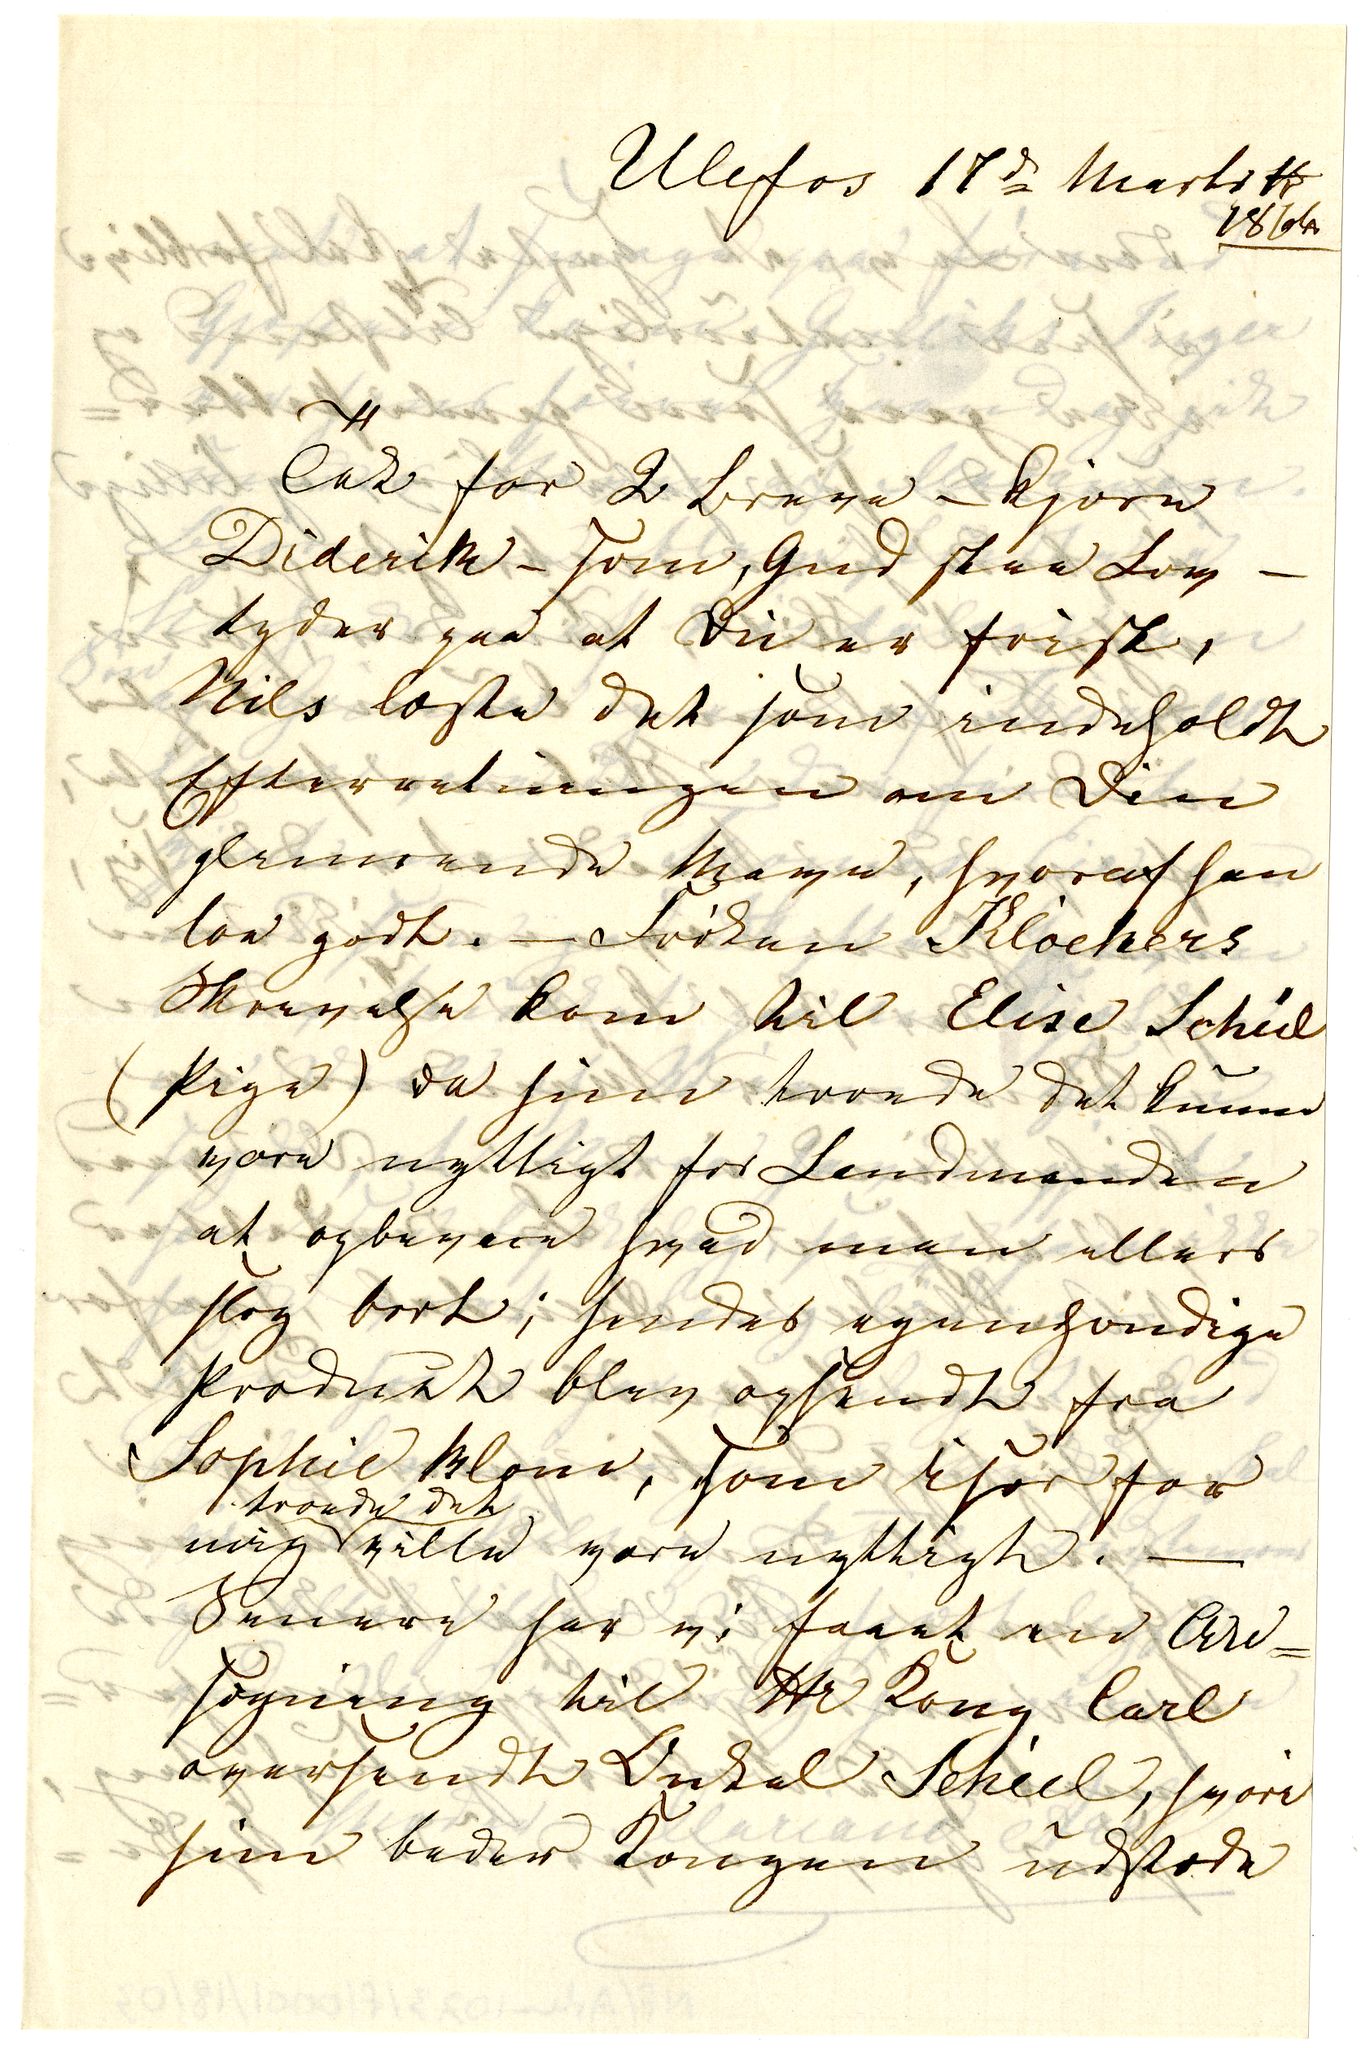 Ulefos 17de Marts
1864
Tak for 2 Breve – kjære
Diderik – som, Gud skee Lov –
tyder paa at Du er frisk,
Nils læste det som indeholdt
Efterretningen om Din
glimrende Mave, hvoraf han
loe godt. – Frøken Klöckers
Skrivelse kom til Elise Schiel
(Pige) da hun troede det kunne
være nyttigt for Landmanden
at opbevare hvad man ellers
slog bort; hendes egenhændige
Produkt blev opsendt fra
Sophie Klem, som især for
mig troede det ville være nyttigt. –
Senere har vi faaet en An=
søgning til Hr Kong Carl
oversendt Onkel Schiel, hvori
hun beder Kongen udstæde